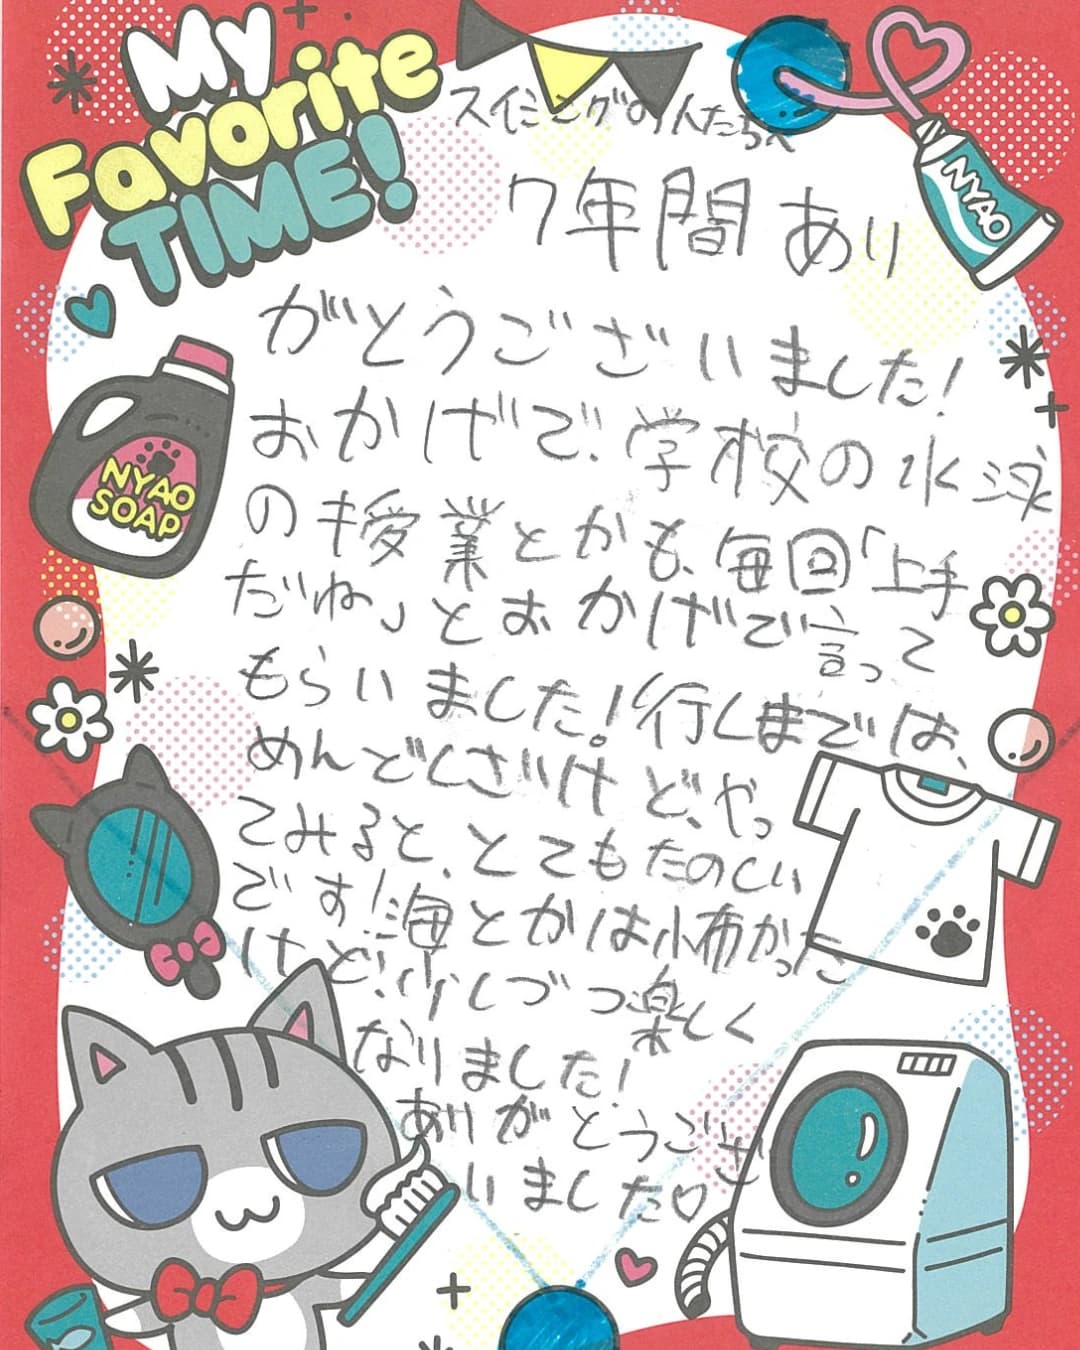 My
Favorite
TIME!
スイミングのんたちへ
7年間あり
がとうございました!
おかげで、学校の水泳
の授業とかも、毎回「上手
だね」とおかげで言って
もらいました!行くまでは、
めんどくさいけど、やっ
てみると、とてもたのしい
です!海とかは怖かった
けど!少しづつ楽しく
なりました!
ありがとうござ
いました♡
NYAO
NYAO
SOAP